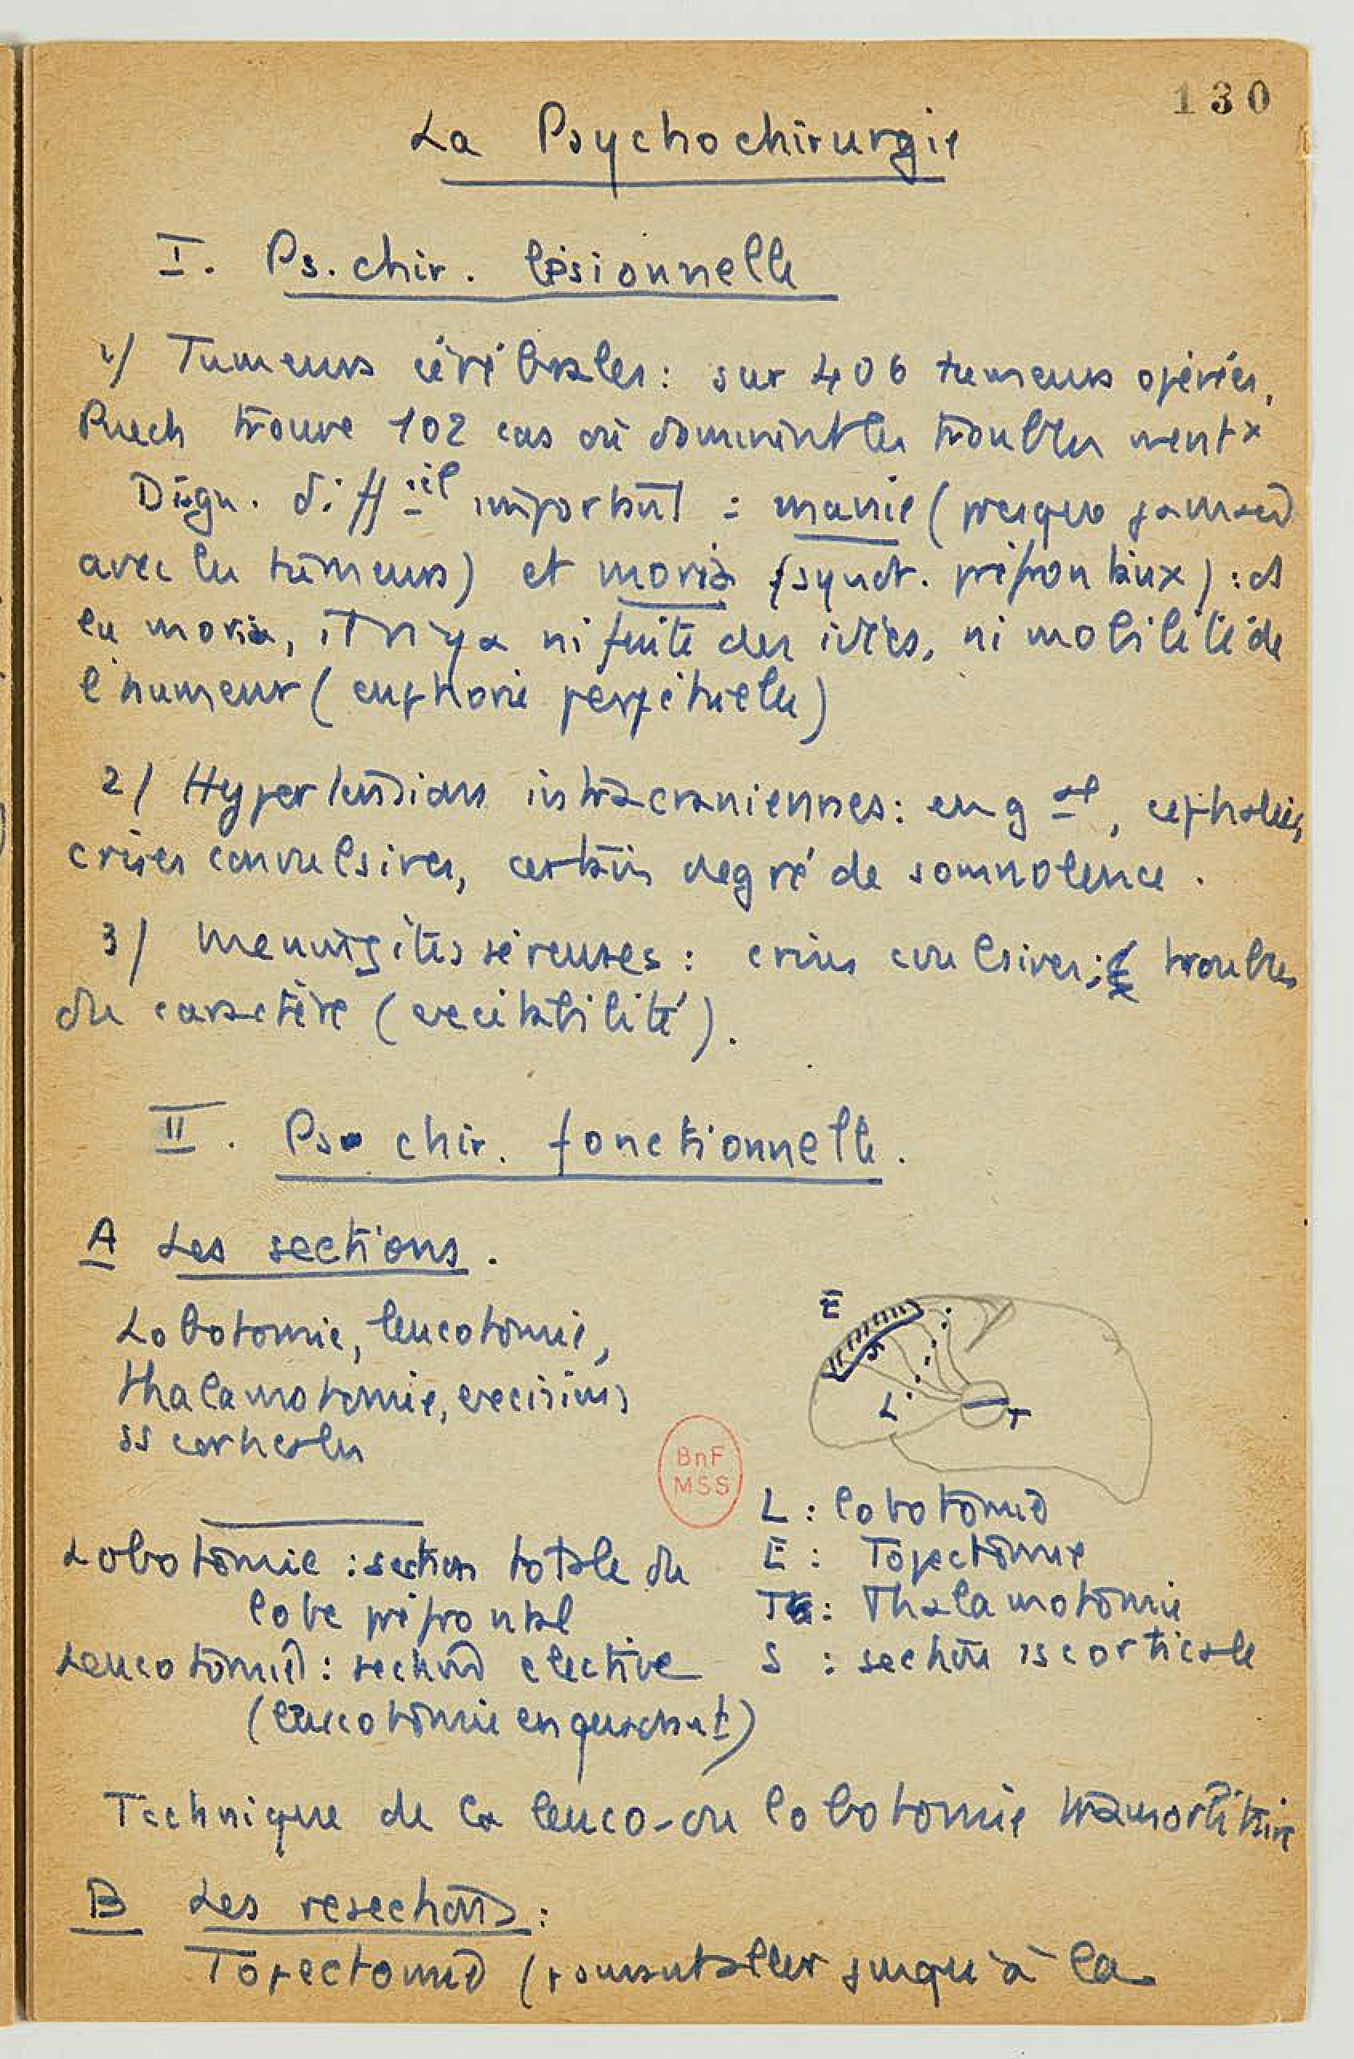 130
La Psychochirurgie
I. Ps. chir. lésionnelle
1/ Tumeurs cérébrales : sur 406 tumeurs opérées,
Puech trouve 102 cas où dominent les troubles mentx
Diagn. diff iel important : manie (presque jamais
avec les tumeurs) et moria (synd. préfrontaux) : ds
la moria, il n'y a ni fuite des idées, ni mobilité de
l'humeur (euphorie perpétuelle)
2/ Hypertensions intracraniennes : en g al, céphalées,
crises convulsives, certain degré de somnolence.
3/ Meningites séreuses : crises cvulsives; troubles
du caractère (excitabilité).
II. Ps chir. fonctionnelle.
A Les sections.
Lobotomie, leucotomie,
thalamotomie, excisions
ss corticales
E
S
L
T
BnF
MSS
L : lobotomie
E : Topectomie
T : Thalamotomie
S : section ss corticale
Lobotomie : section totale du
lobe préfrontal
Leucotomie : section élective
(leucotomie en quadrant)
Technique de la leuco- ou lobotomie transorbitaire
B Les resections :
Topectomie ( jusqu'à la